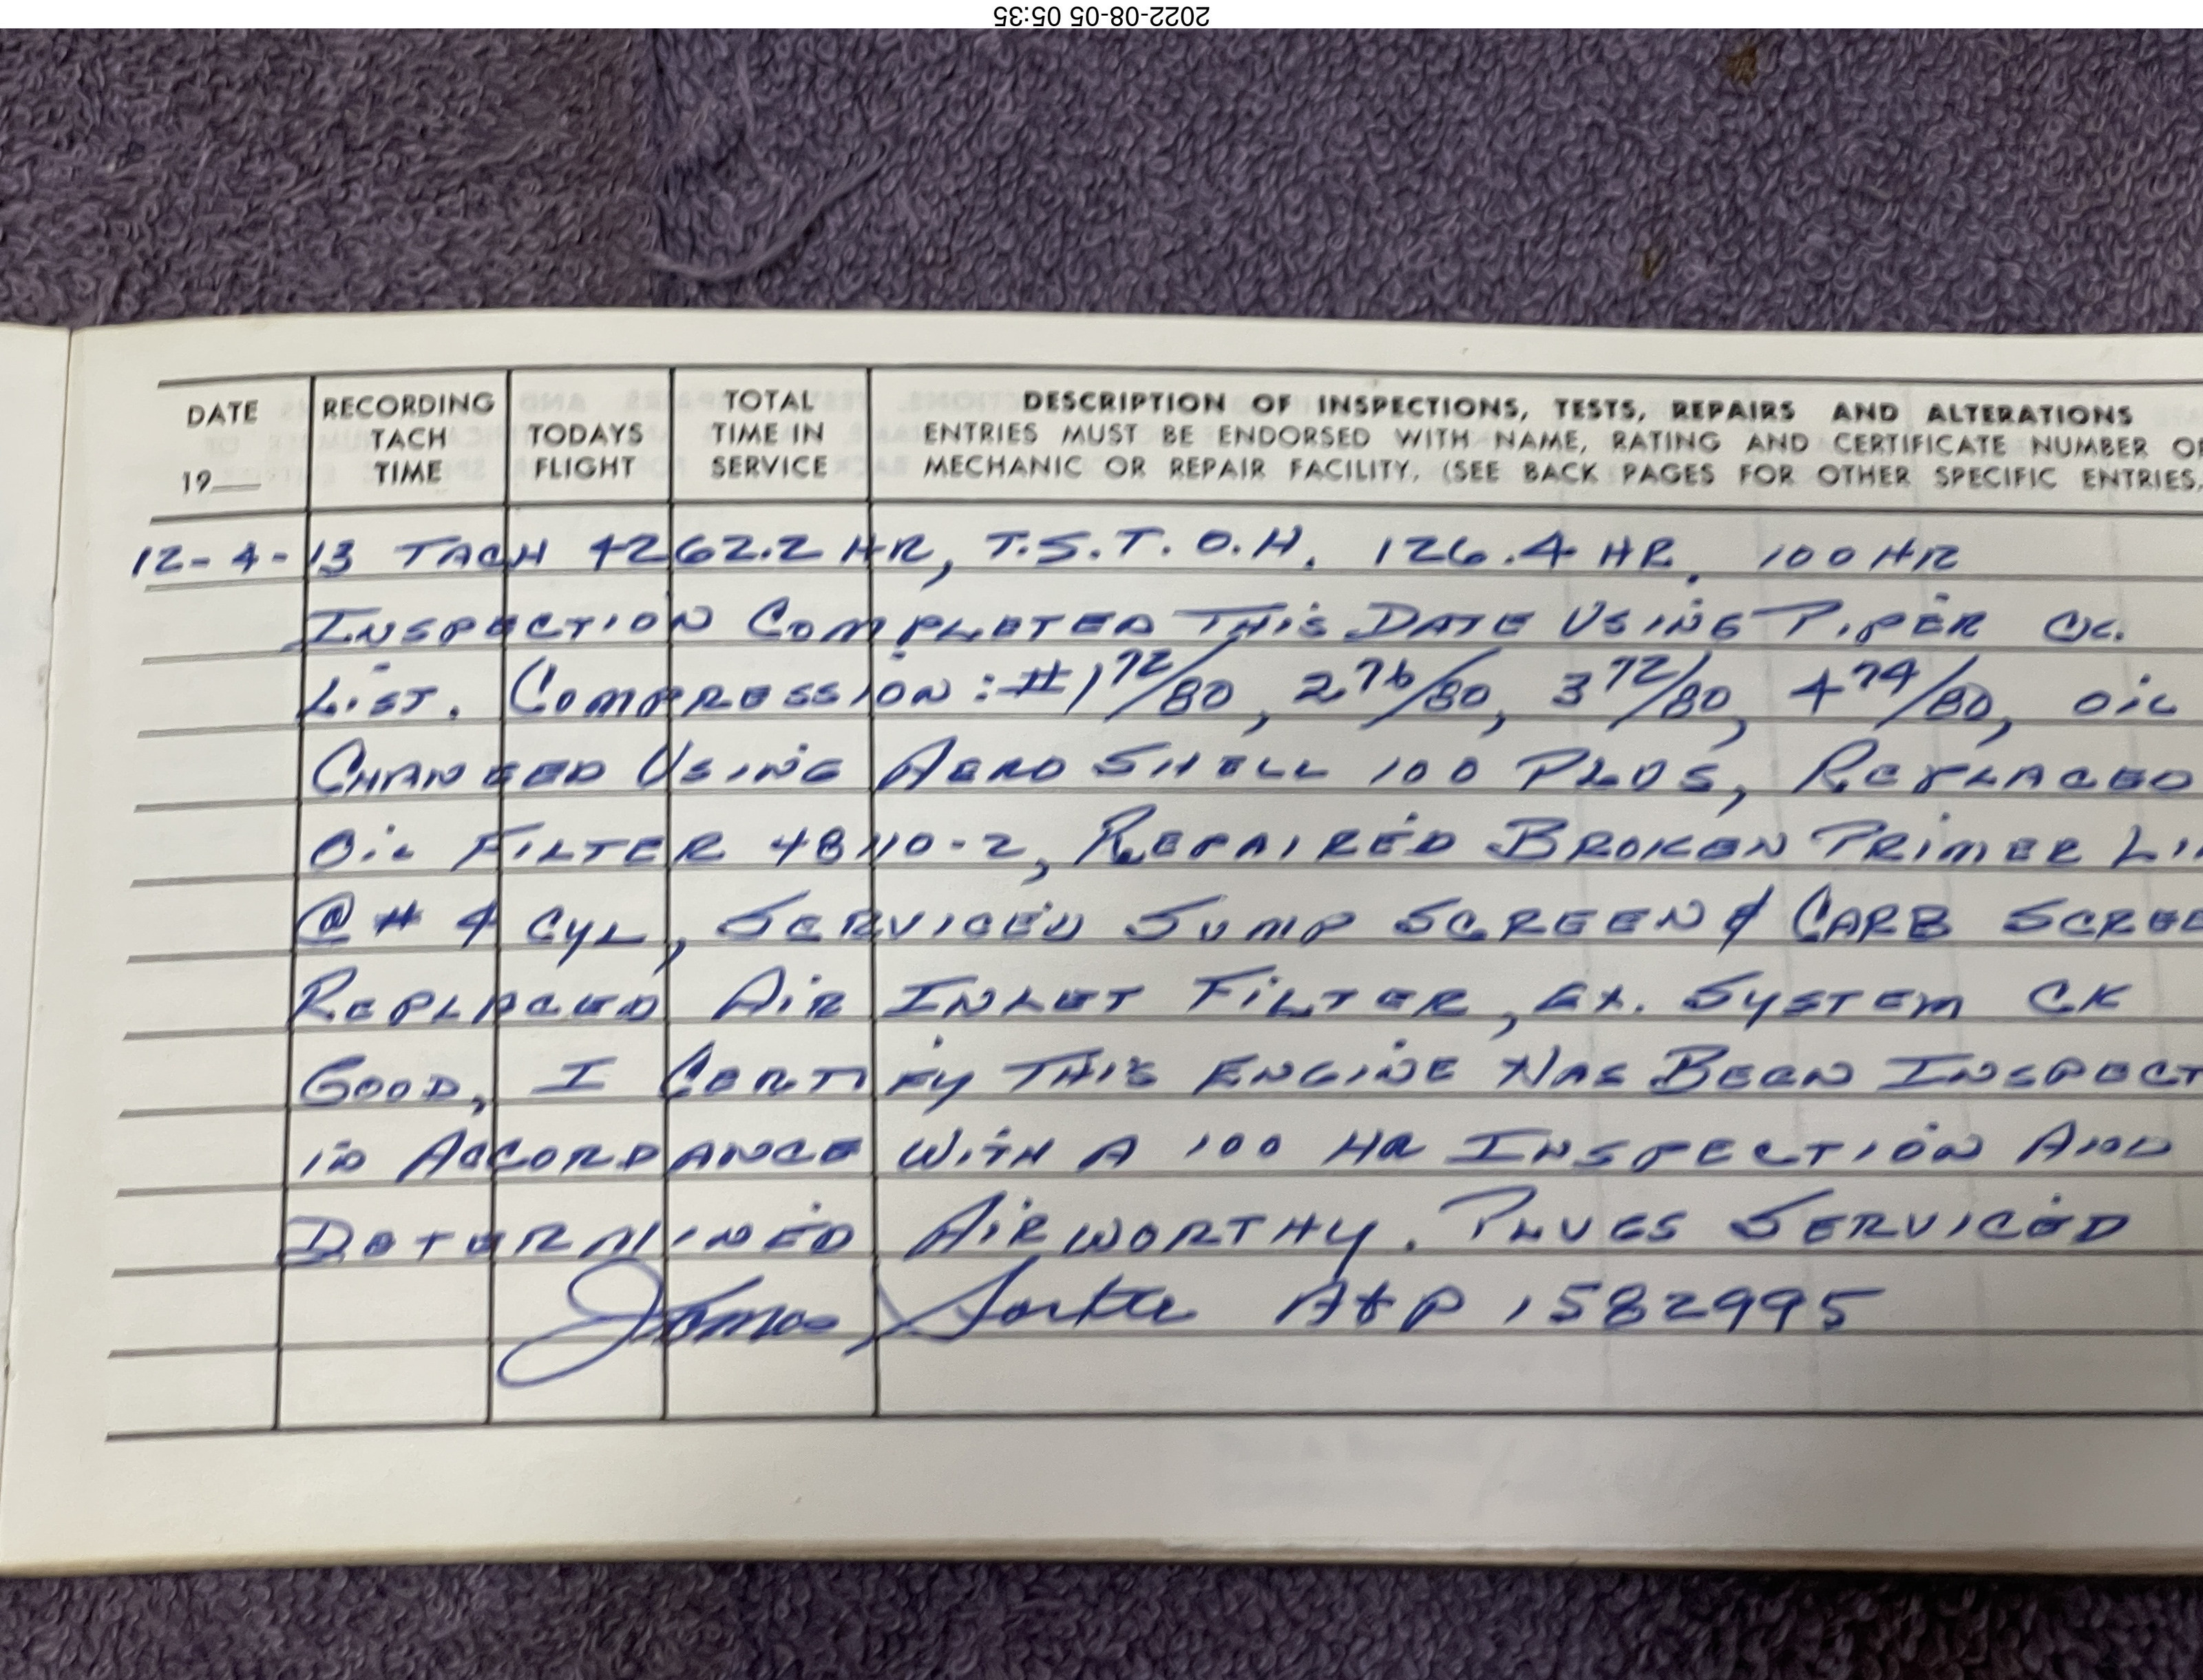 2022-08-05 05:35
DATE
19__
RECORDING
TACH
TIME
TODAYS
FLIGHT
TOTAL
TIME IN
SERVICE
DESCRIPTION OF INSPECTIONS, TESTS, REPAIRS AND ALTERATIONS
ENTRIES MUST BE ENDORSED WITH NAME, RATING AND CERTIFICATE NUMBER OF
MECHANIC OR REPAIR FACILITY. (SEE BACK PAGES FOR OTHER SPECIFIC ENTRIES.
12-4-13 TACH 4262.2 HR, T.S.T.O.H. 126.4 HR. 100 HR
INSPECTION COMPLETED THIS DATE USING PIPER CK.
LIST. COMPRESSION: #1 72/80, 2 76/80, 3 72/80, 4 74/80, OIL
CHANGED USING AERO SHELL 100 PLUS, REPLACED
OIL FILTER 48110-2, REPAIRED BROKEN PRIMER LI
@ # 4 CYL, SERVICED SUMP SCREEN & CARB SCREE
REPLACED AIR INLET FILTER, EX. SYSTEM CK
GOOD, I CERTIFY THIS ENGINE HAS BEEN INSPECT
IN ACCORDANCE WITH A 100 HR INSPECTION AND
DETERMINED AIRWORTHY. PLUGS SERVICED
James A&P 1582995